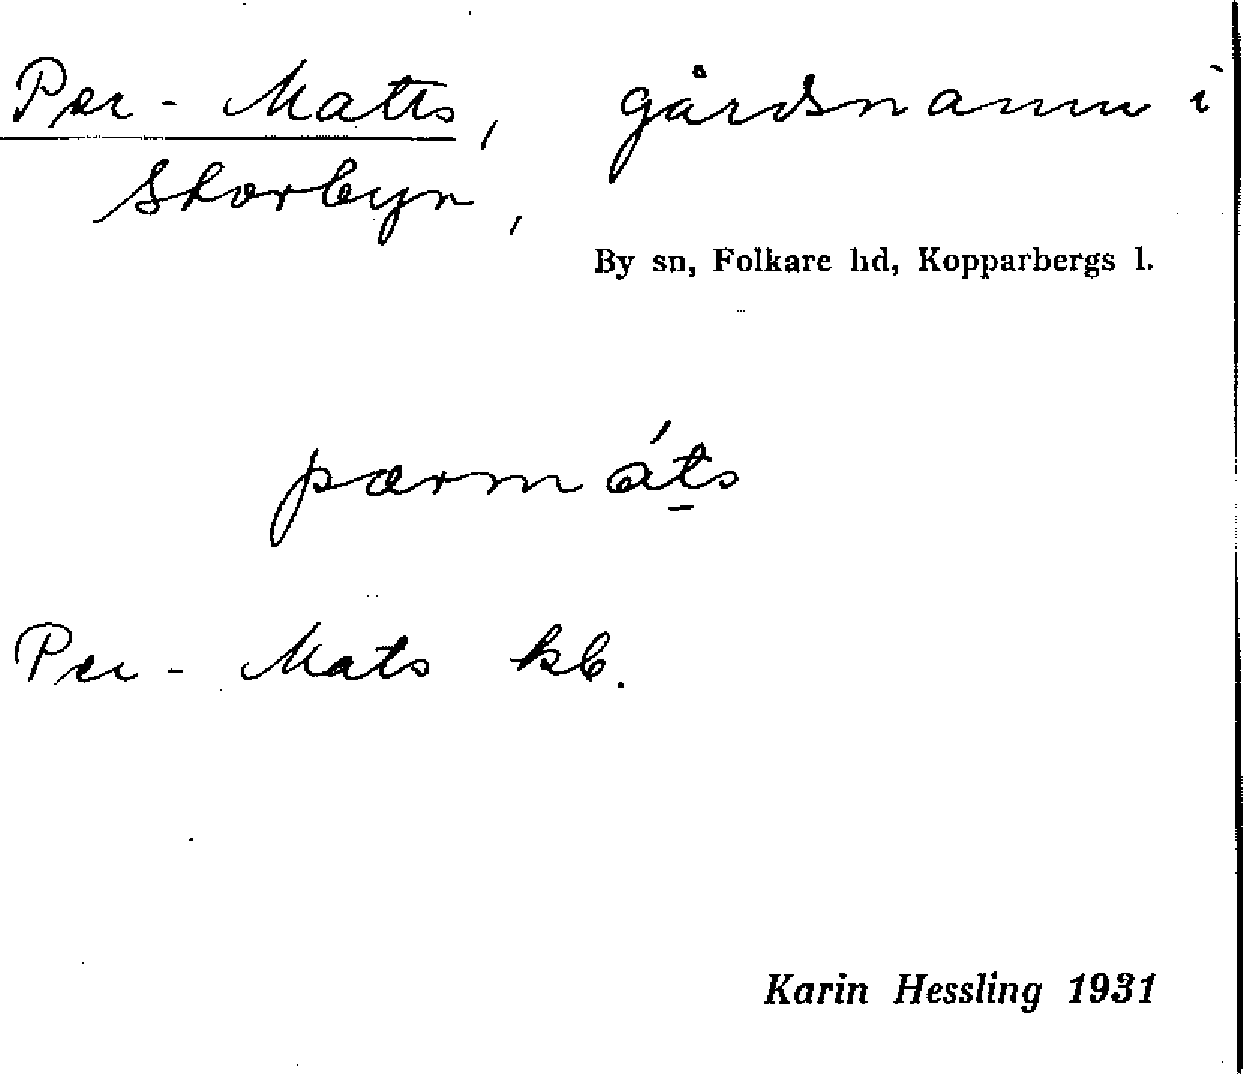 Per-Matts, gårdsnamn i
Storbyn,
By sn, Folkare hd, Kopparbergs l.
pærmáts
Per-Mats kb.
Karin Hessling 1931